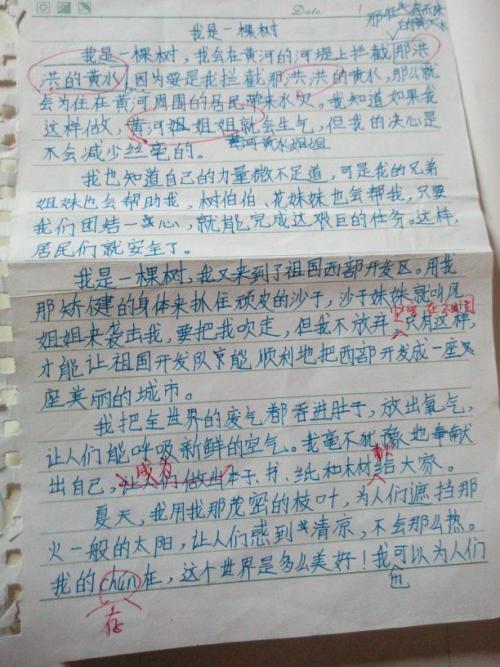 Date
我是一棵树
我是一棵树，我会在黄河的河堤上拦截那洪
洪的黄水，因为要是我拦截那洪洪的黄水，那么就
会为住在黄河周围的居民带来水灾。我知道如果我
这样做，黄河姐姐就会生气，但我的决心是
黄河黄水姐姐
不会减少丝毫的。
我也知道自己的力量微不足道，可是我的兄弟
姐妹也会帮助我，树伯伯、花妹妹也会帮我，只要
我们团结一心，就能完成这艰巨的任务。这样，
居民们就安全了。
我是一棵树，我又来到了祖国西部开发区。用我
那矫健的身体来抓住顽皮的沙子，沙子妹妹就叫风
姐姐来袭击我，要把我吹走，但我不放弃，只有这样，
才能让祖国开发队 能顺利地把西部开发成一座又
座美丽的城市。
我把全世界的废气都吞进肚子，放出氧气，
让人们能呼吸新鲜的空气。我毫不犹豫地奉献
出自己，成为本子、书、纸和木材献给大家。
夏天，我用我那茂密的枝叶，为人们遮挡那
火一般的太阳，让人们感到清凉，不会那么热。
我的chun在，这个世界是多么美好！我也可以为人们
存